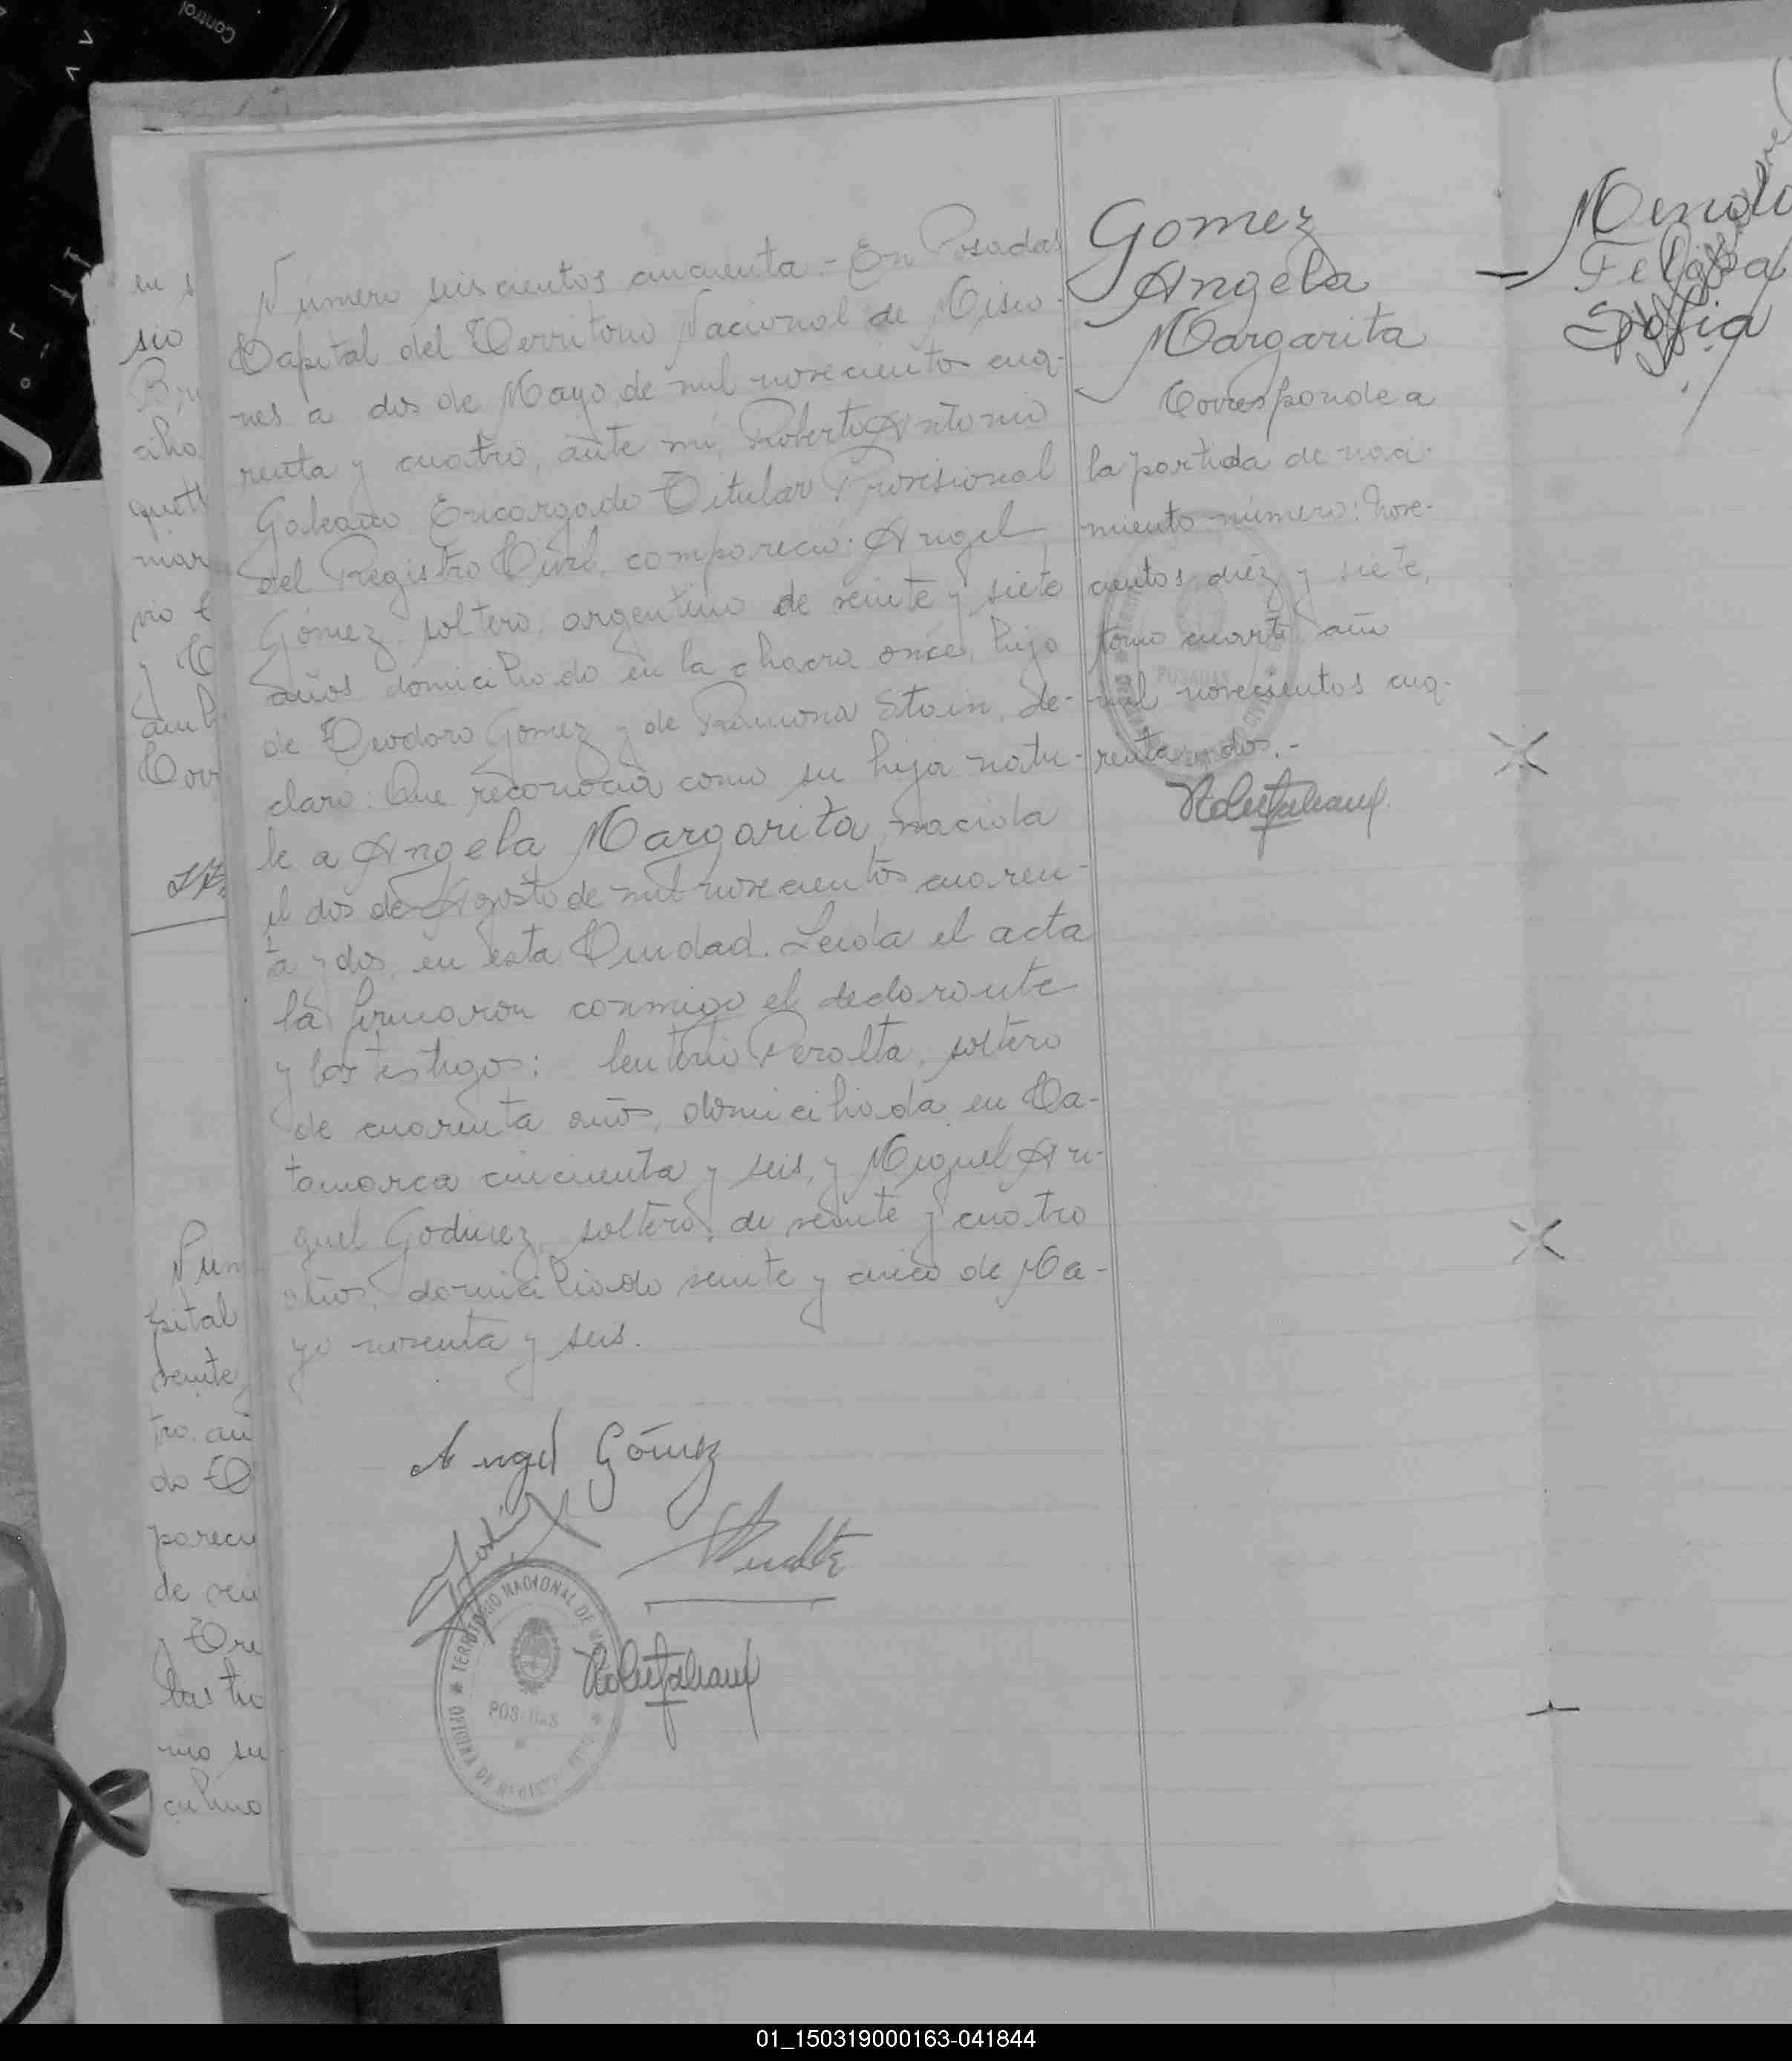 Número seiscientos cincuenta.- En Posadas
Capital del Territorio Nacional de Misio-
nes a dos de Mayo de mil novecientos cua-
renta y cuatro, ante mí, Roberto Antonio
Galeano Encargado Titular Provisional
del Registro Civil, compareció: Angel
Gómez soltero. argentino de veinte y siete
años domiciliado en la chacra once, hijo
de Teodoro Gomez y de Ramona Stain, de-
claró: Que reconocía como su hija natu-
le a Angela Margarita, nacida
el dos de Agosto de mil novecientos cuaren-
ta y dos, en esta Ciudad. Leida el acta
la firmaron conmigo el declarante
y los testigos: Peralta, soltero
de cuarenta años, domiciliada en Ca-
tamarca cincuenta y seis, y Miguel
Godinez, soltero, de veinte y cuatro
años, domiciliado veinte y cinco de Ma-
yo noventa y seis.
Angel Gómez
Peralta
TERRITORIO NACIONAL DE
POSADAS
Gomez
Angela
Margarita
Corresponde a
la partida de naci-
miento número: nove-
cientos diéz y siete,
tomo cuarto año
mil novecientos cua-
renta y dos.-
POSADAS
Felisa
Sofia
en
sio
mar
y
Num
pital
veinte
tro. an
do
parecu
de vei
mo su
Control
01_150319000163-041844